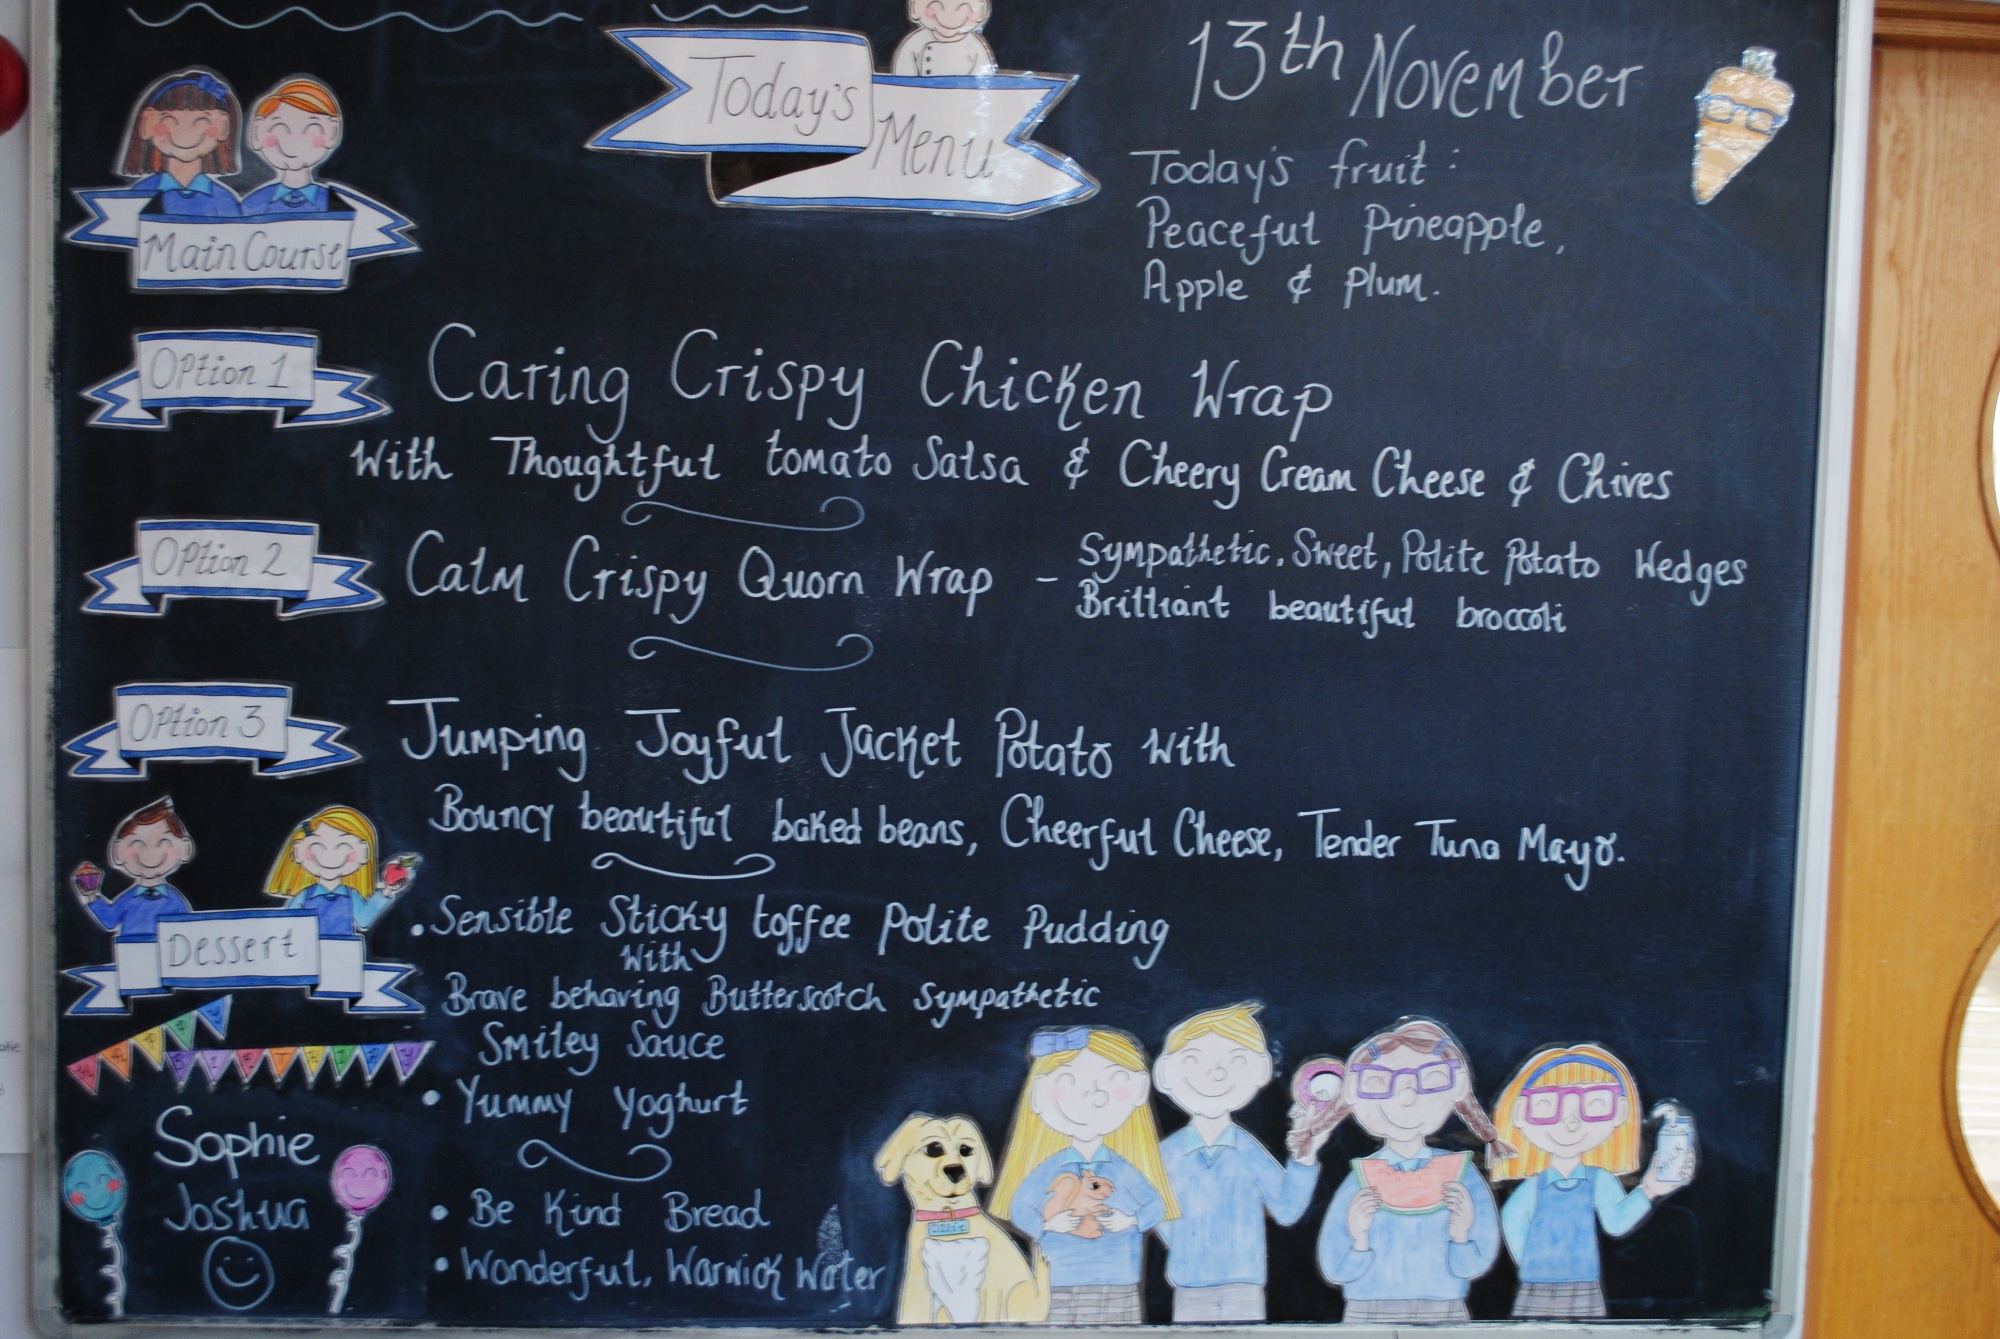 Today's
Menu
13th November
Today's fruit:
Peaceful Pineapple,
Apple & Plum.
Main Course
Option 1
Caring Crispy Chicken Wrap
With Thoughtful tomato Salsa & Cheery Cream Cheese & Chives
Option 2
Calm Crispy Quorn Wrap - Sympathetic, Sweet, Polite Potato Wedges
Brilliant beautiful broccoli
Option 3
Jumping Joyful Jacket Potato with
Bouncy beautiful baked beans, Cheerful Cheese, Tender Tuna Mayo.
Dessert
• Sensible Sticky toffee Polite Pudding
With
Brave behaving Butterscotch Sympathetic
Smiley Sauce
• Yummy Yoghurt
• Be Kind Bread
• Wonderful, Warwick Water
HAPPY
BIRTHDAY
Sophie
Joshua